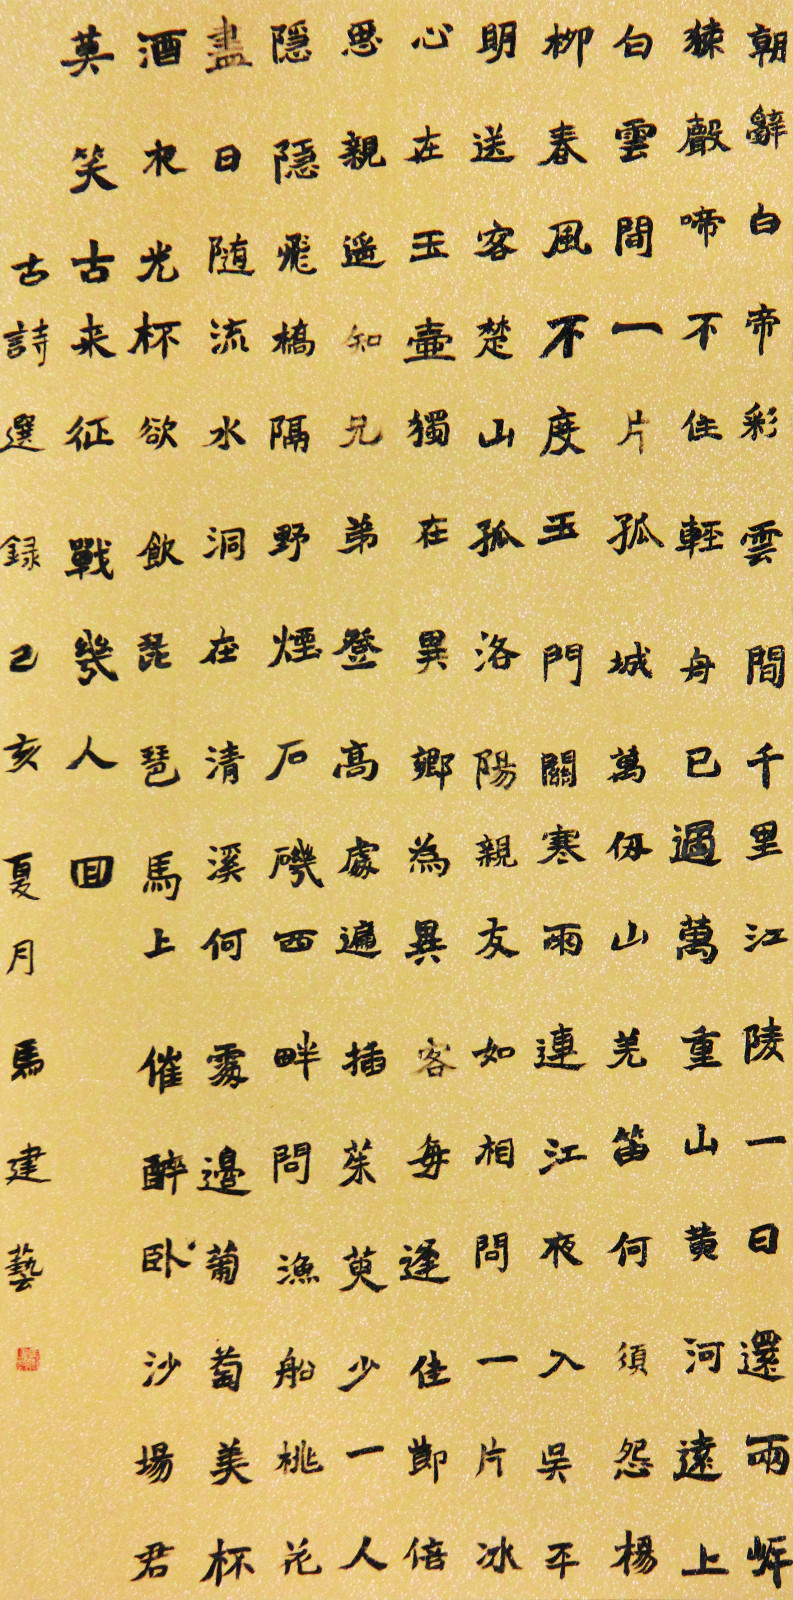 朝辭白帝彩雲間千里江陵一日還兩岸
猿聲啼不住輕舟已過萬重山黃河遠上
白雲間一片孤城萬仞山羌笛何須怨楊
柳春風不度玉門關寒雨連江夜入吳平
明送客楚山孤洛陽親友如相問一片冰
心在玉壺獨在異鄉為異客每逢佳節倍
思親遥知兄弟登高處遍插茱萸少一人
隱隱飛橋隔野煙石磯西畔問漁船桃花
盡日随流水洞在清溪何處邊葡萄美杯
酒夜光杯欲飲琵琶馬上催醉卧沙場君
莫笑古来征戰幾人回
古詩選録己亥夏月馬建藝